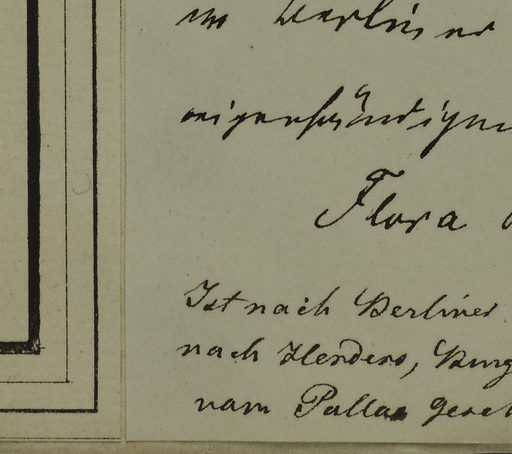 im Berliner
eigenhändigen
Flora
Ist nach Berliner
nach Herders, Burg
vam Pallas gesch